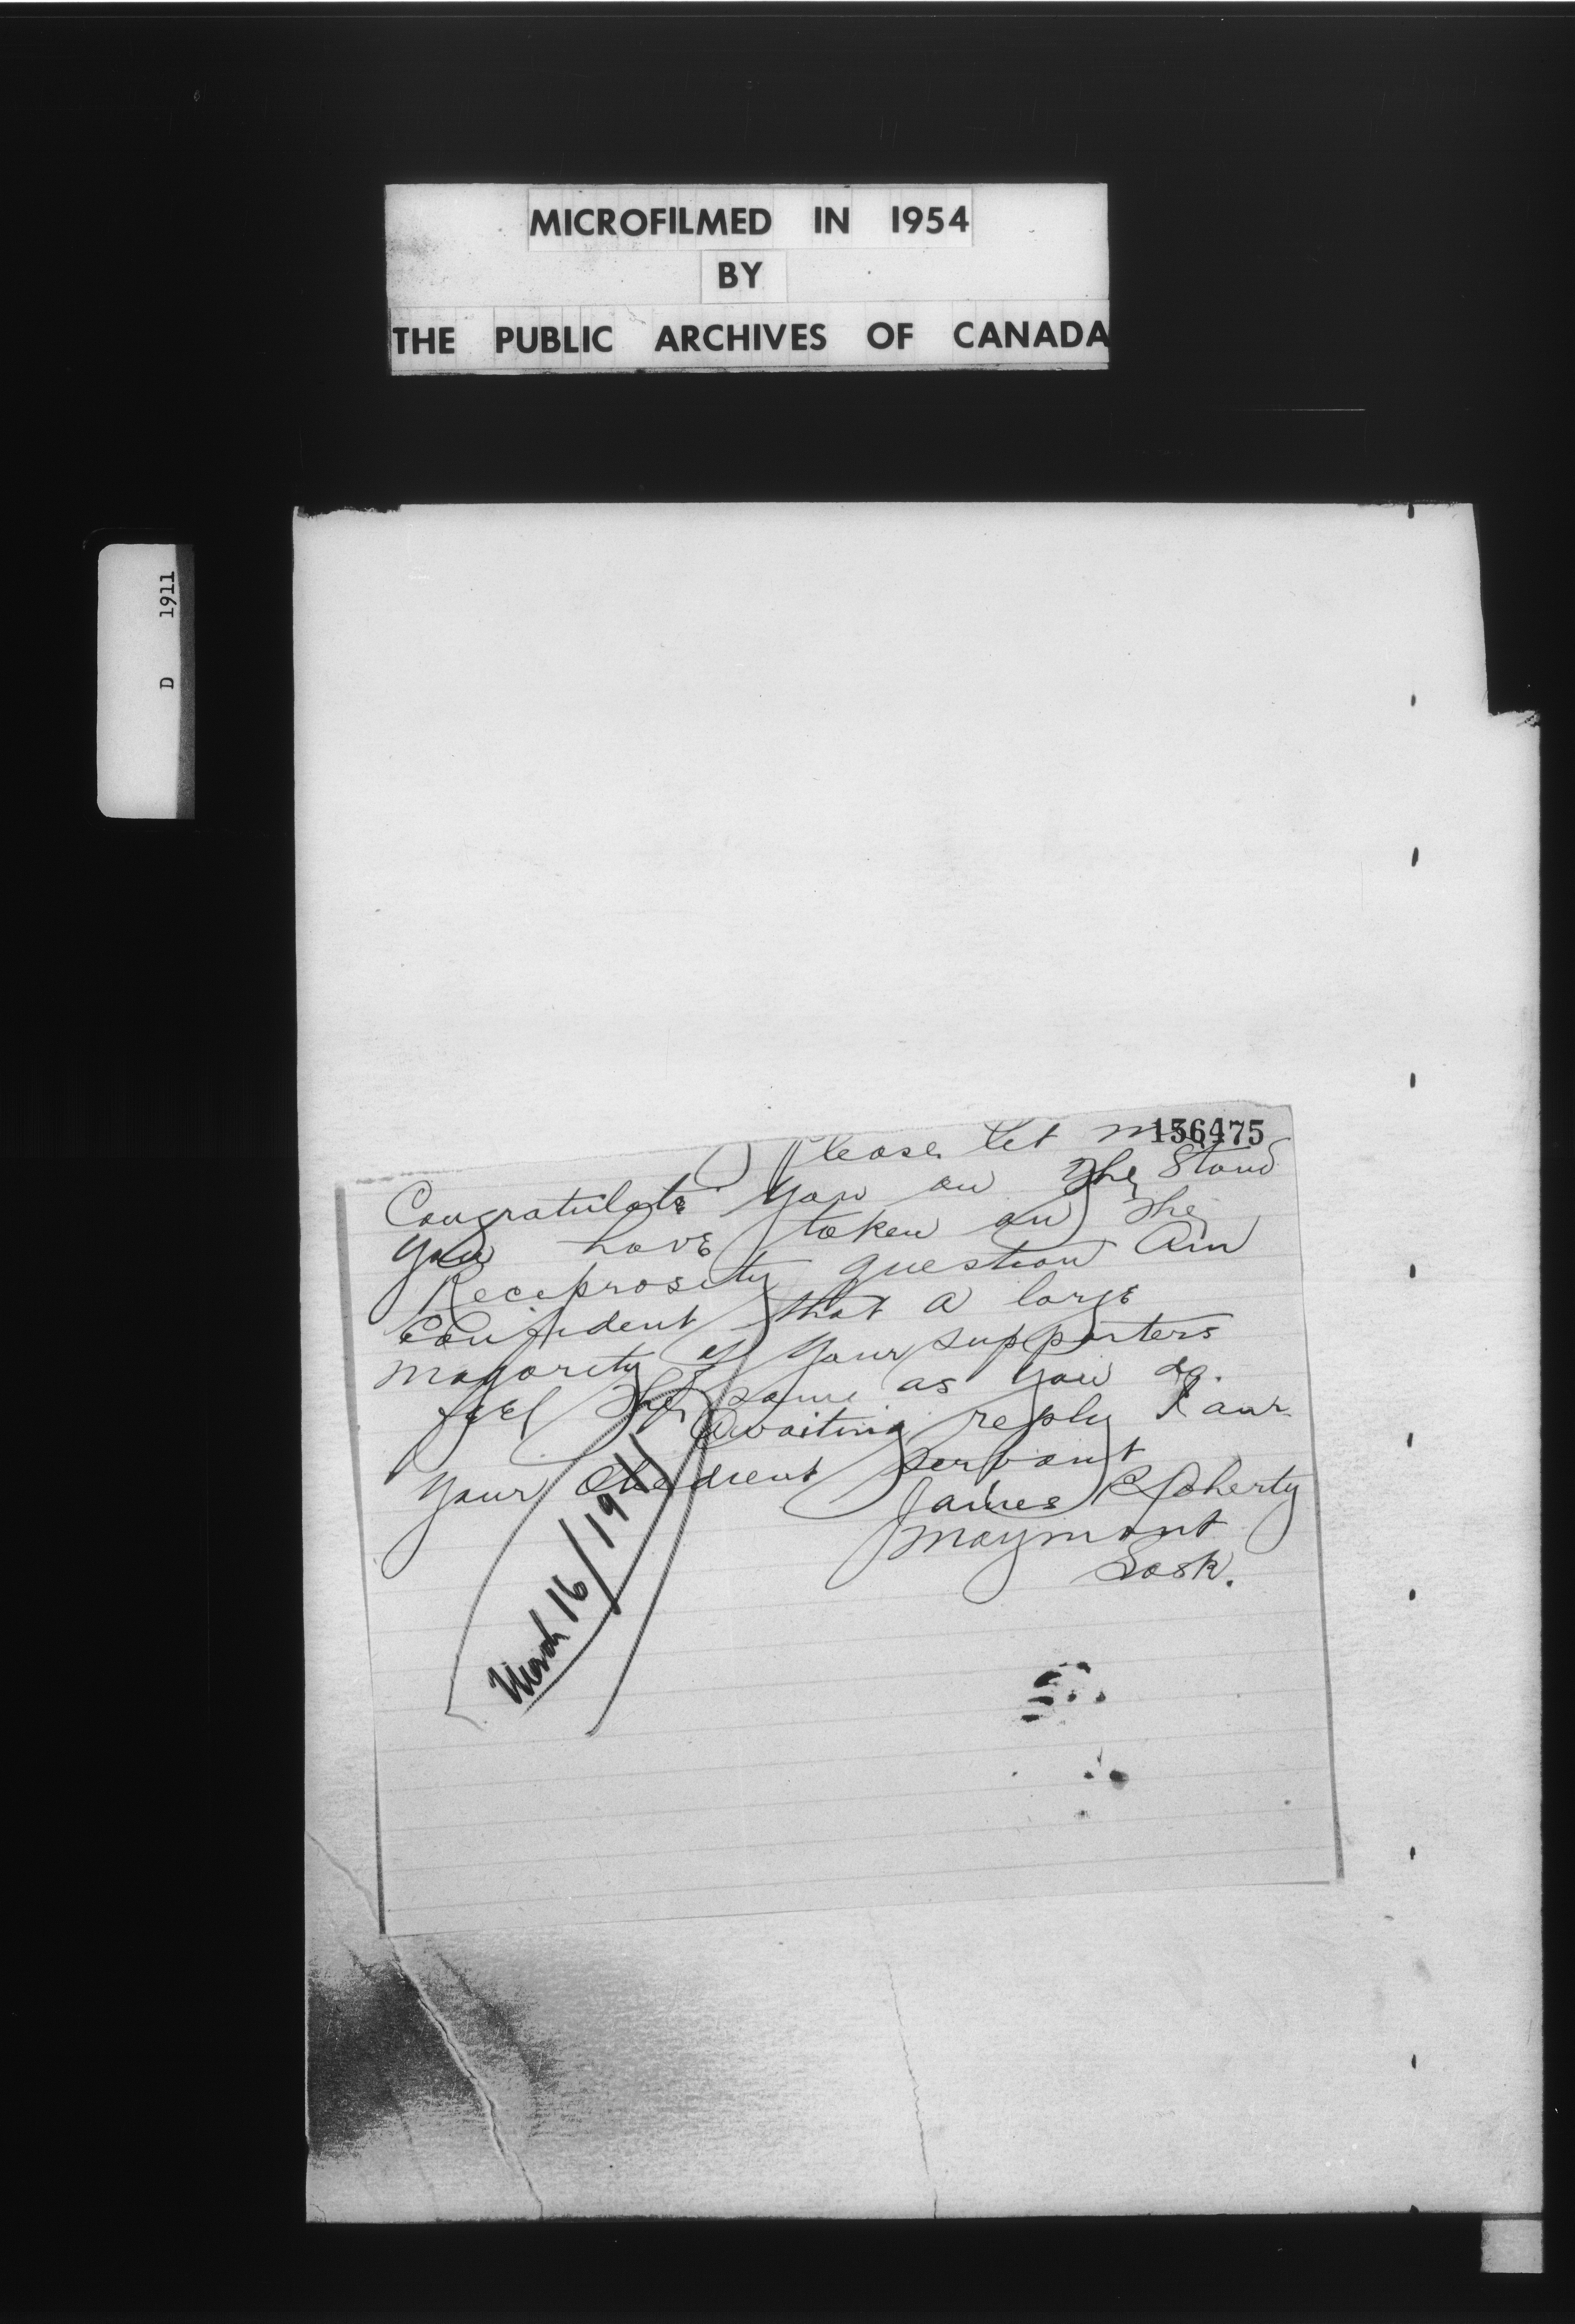 MICROFILMED IN 1954
BY
THE PUBLIC ARCHIVES OF CANADA
D 1911
156475
Please let me
Congratulate you on the Stand
you have taken on the
Reciprosity question Am
Confident that a large
magority of your supporters
feel the same as you do.
Awaiting reply I am
your obedient servant
James C Doherty
Maymont
Sask.
March 16/1911